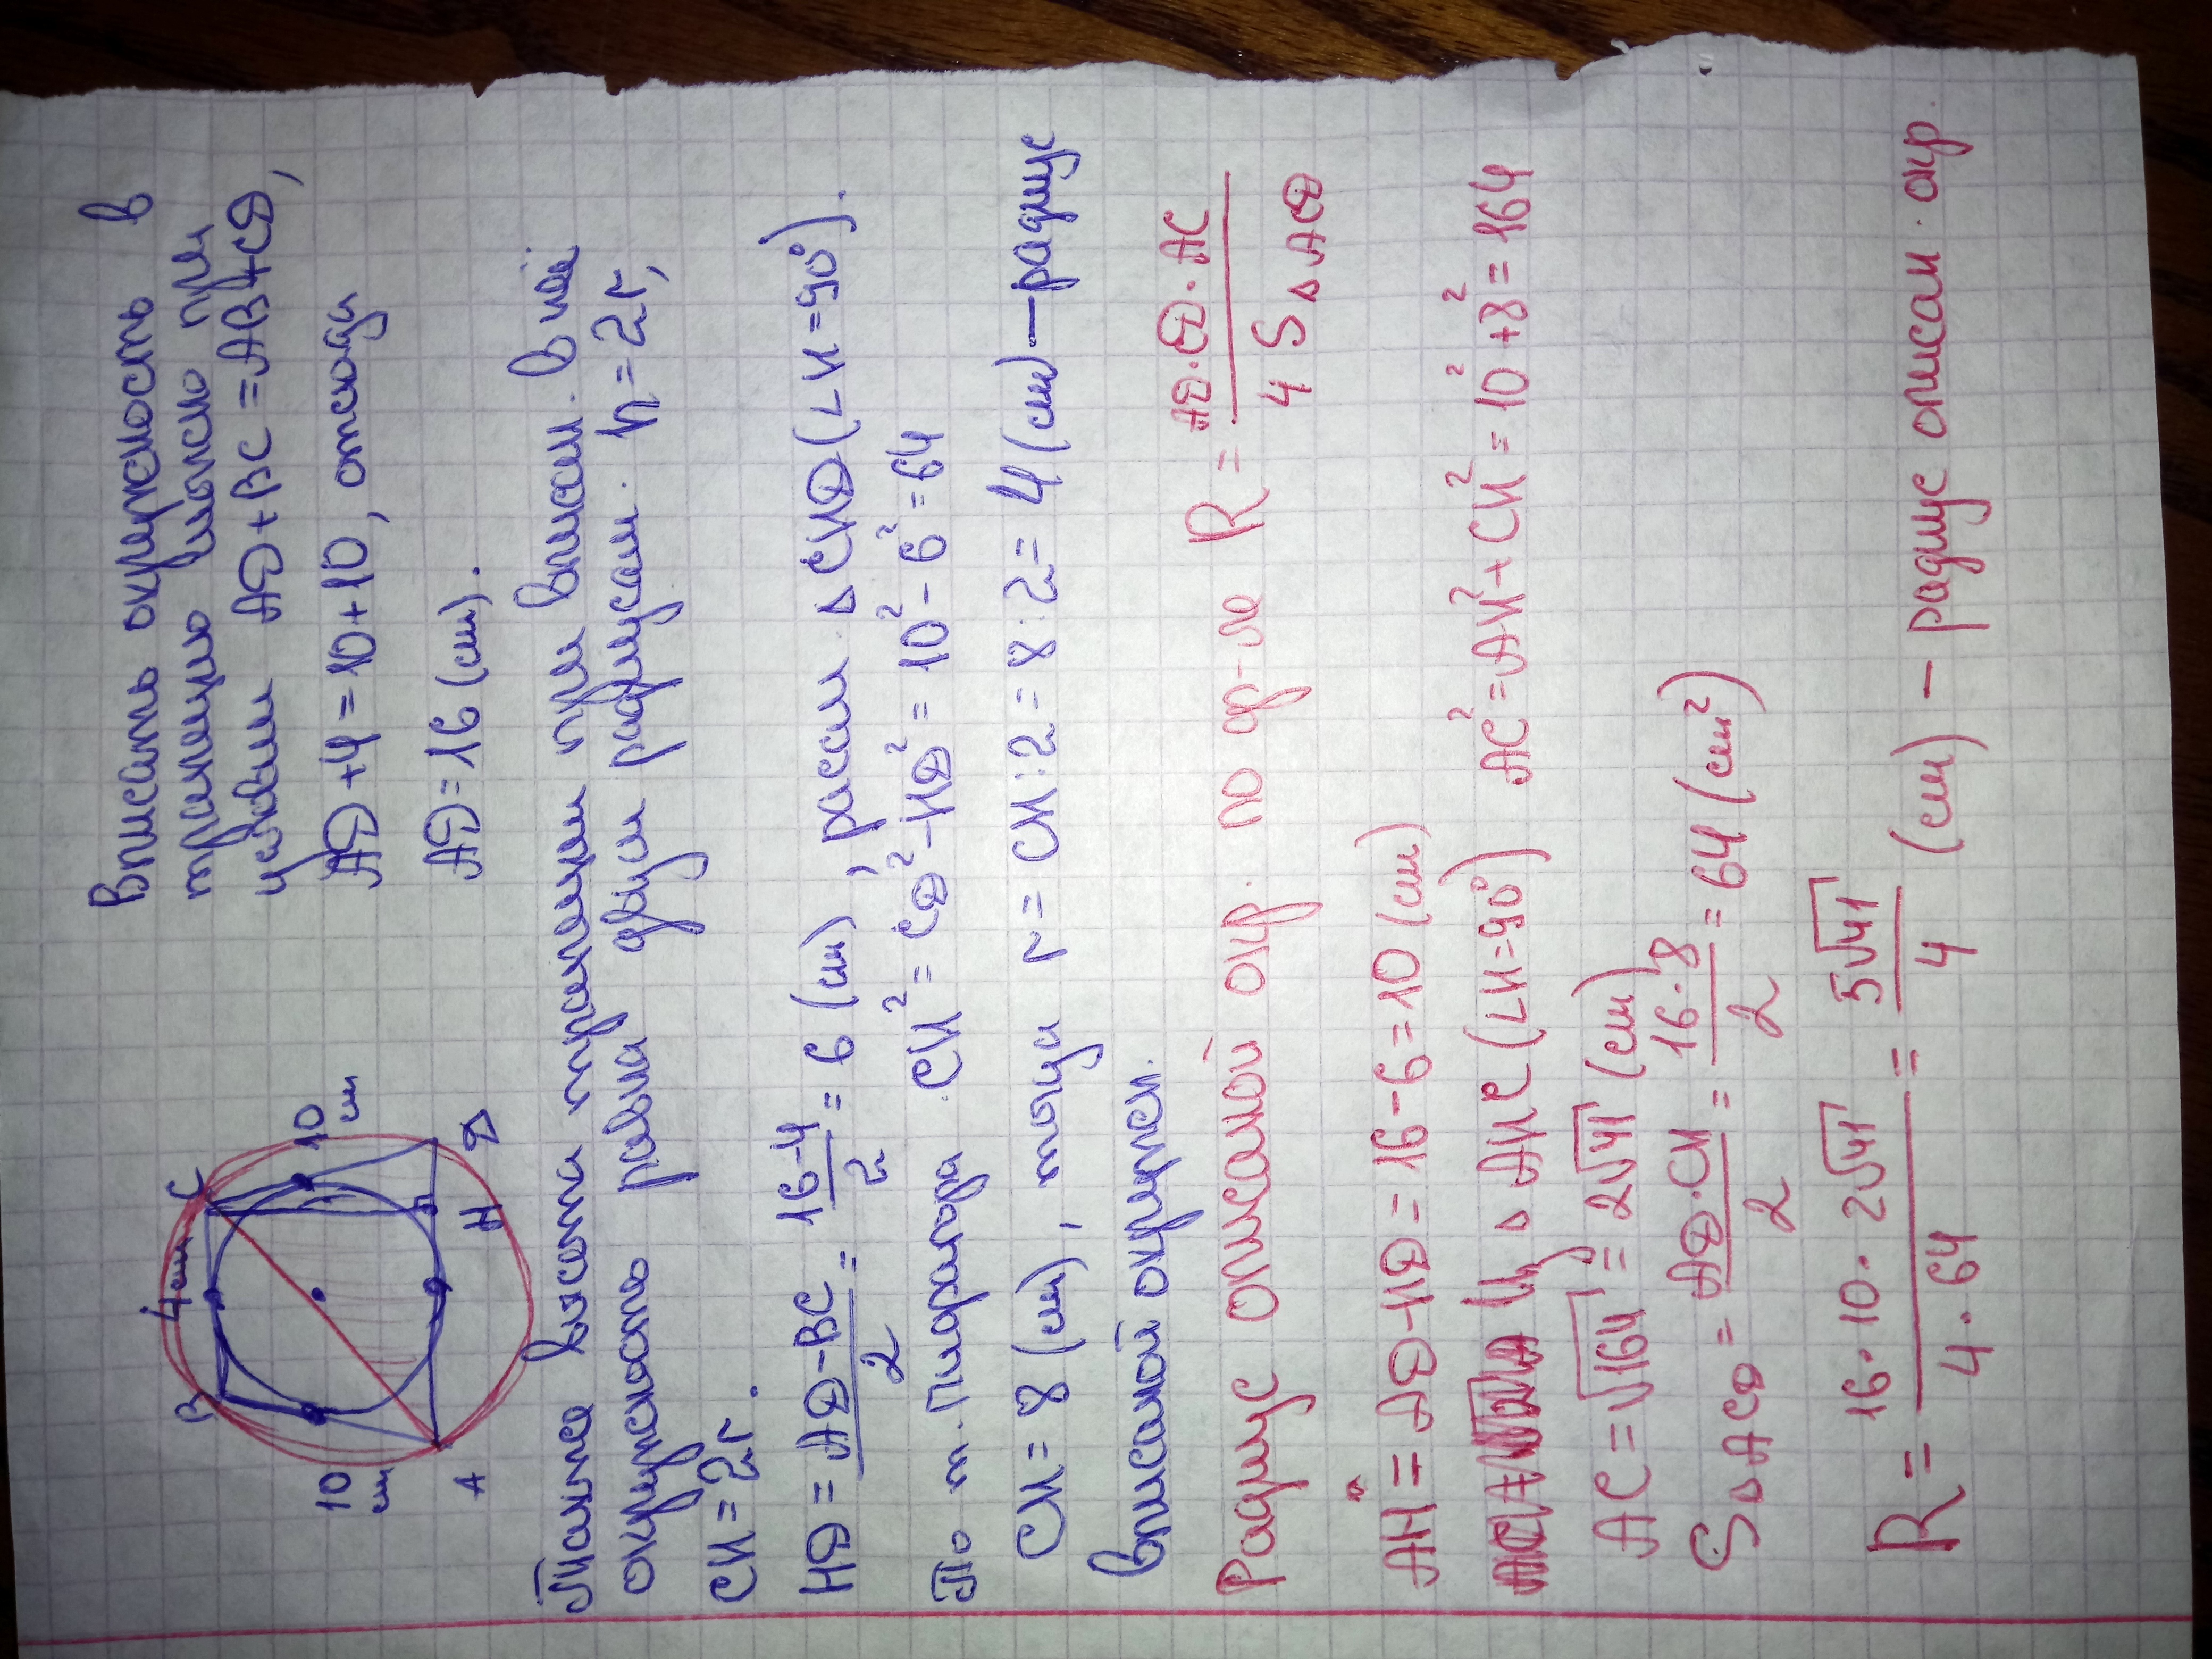 Вписать окружность в
трапецию можно при
условии AD + BC = AB + CD,
AD + 4 = 10 + 10, отсюда
AD = 16 (см).
B 4 см C
10 см
10 см
A H D
Также высота трапеции при впис. в неё
окружности равна двум радиусам. h = 2r,
CH = 2r.
HD = AD - BC / 2 = 16 - 4 / 2 = 6 (см), рассм ∆ CHD (∠H = 90°).
По т. Пифагора CH² = CD² - HD² = 10² - 6² = 64
CH = 8 (см), тогда r = CH : 2 = 8 : 2 = 4 (см) — радиус
вписанной окружн.
Радиус описаной окр. по ф-ле R = AD · CD · AC / 4 S∆ACD
AH = AD - HD = 16 - 6 = 10 (см)
Из ∆ AHC (∠H = 90°) AC² = AH² + CH² = 10² + 8² = 164
AC = √164 = 2√41 (см)
S∆ACD = AD · CH / 2 = 16 · 8 / 2 = 64 (см²)
R = 16 · 10 · 2√41 / 4 · 64 = 5√41 / 4 (см) — радиус описан. окр.